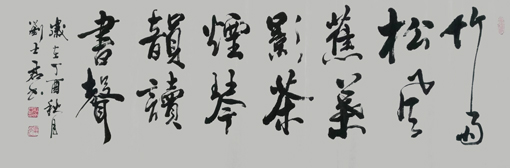 竹雨
松風
蕉葉
影茶
煙琴
韻讀
書聲
歲在丁酉秋月
劉士